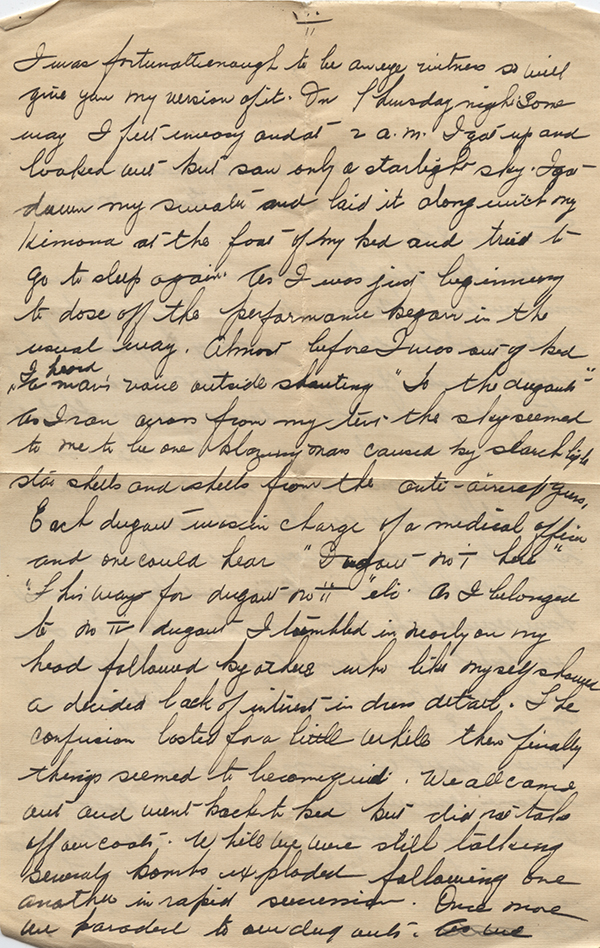 II
I was fortunate enough to be an eye witness so will
give you my version of it. On Thursday night some
way I felt uneasy and at 2 a.m. I got up and
looked out but saw only a starlight sky. I got
down my sweater and laid it along with my
kimona at the foot of my bed and tried to
go to sleep again. As I was just beginning
to dose off the performance began in the
usual way. Almost before I was out of bed
I heard
a man's voice outside shouting "To the dugouts"
As I ran across from my tent the sky seemed
to me to be one blazing mass caused by search lights
star shells and shells from the anti-aircraft guns.
Each dugout was in charge of a medical officer
and one could hear "Dugout no I here"
"This way for dugout no II" etc. As I belonged
to no IV dugout I tumbled in nearly on my
head followed by others who like myself showed
a decided lack of interest in dress detail. The
confusion lasted for a little while then finally
things seemed to become quiet. We all came
out and went back to bed but did not take
off our coats. While we were still talking
several bombs exploded following one
another in rapid succession. Once more
we paraded to our dug outs. As we